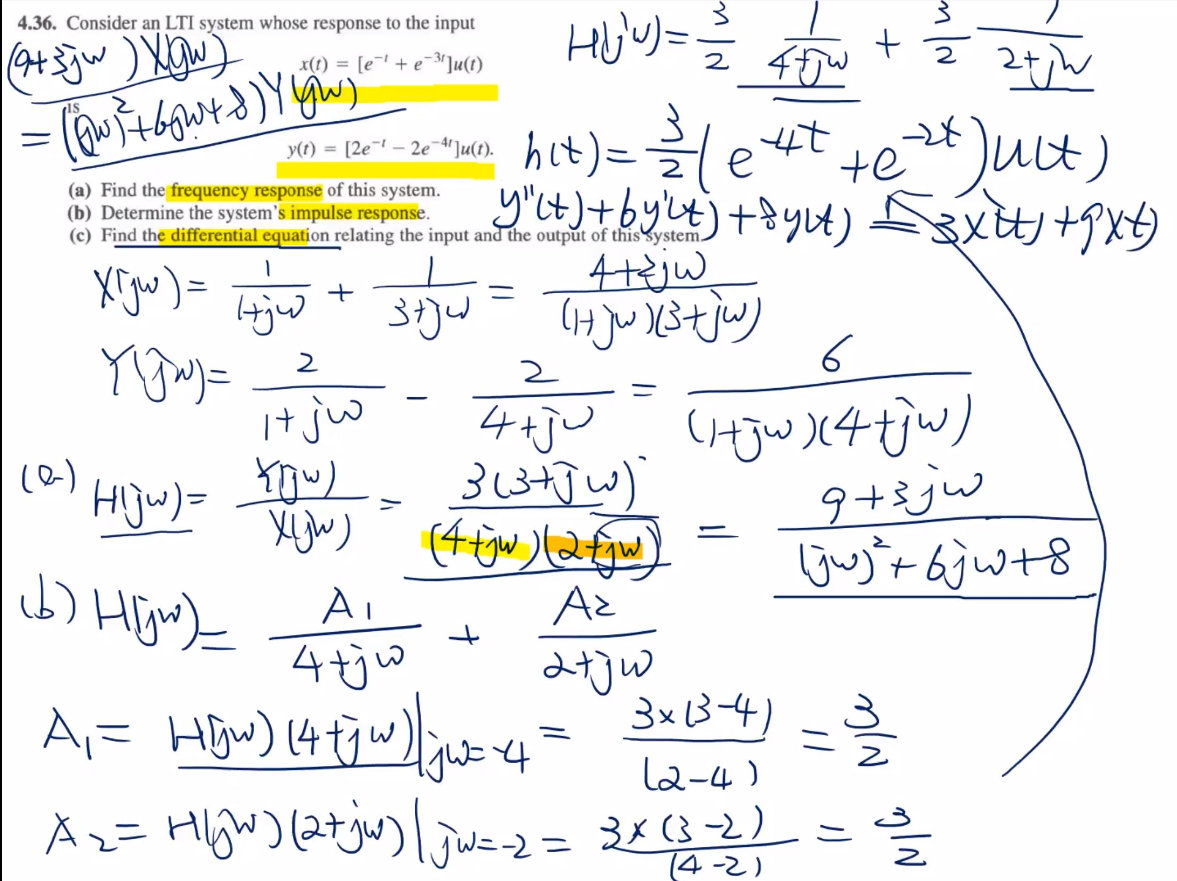 4.36. Consider an LTI system whose response to the input
x(t) = [e^{-t} + e^{-3t}]u(t)
is
y(t) = [2e^{-t} − 2e^{-4t}]u(t).
(a) Find the frequency response of this system.
(b) Determine the system's impulse response.
(c) Find the differential equation relating the input and the output of this system.
(9+3jw)X(jw)
= ((jw)^2+6jw+8)Y(jw)
H(jw) = 3/2 1/(4+jw) + 3/2 1/(2+jw)
h(t) = 3/2 (e^{-4t} + e^{-2t})u(t)
y''(t)+6y'(t)+8y(t) = 3x'(t)+9x(t)
X(jw) = 1/(1+jw) + 1/(3+jw) = (4+2jw)/((1+jw)(3+jw))
Y(jw) = 2/(1+jw) - 2/(4+jw) = 6/((1+jw)(4+jw))
(a) H(jw) = Y(jw)/X(jw) = 3(3+jw)/((4+jw)(2+jw)) = (9+3jw)/((jw)^2+6jw+8)
(b) H(jw) = A1/(4+jw) + A2/(2+jw)
A1 = H(jw)(4+jw)|jw=-4 = 3×(3-4)/(2-4) = 3/2
A2 = H(jw)(2+jw)|jw=-2 = 3×(3-2)/(4-2) = 3/2